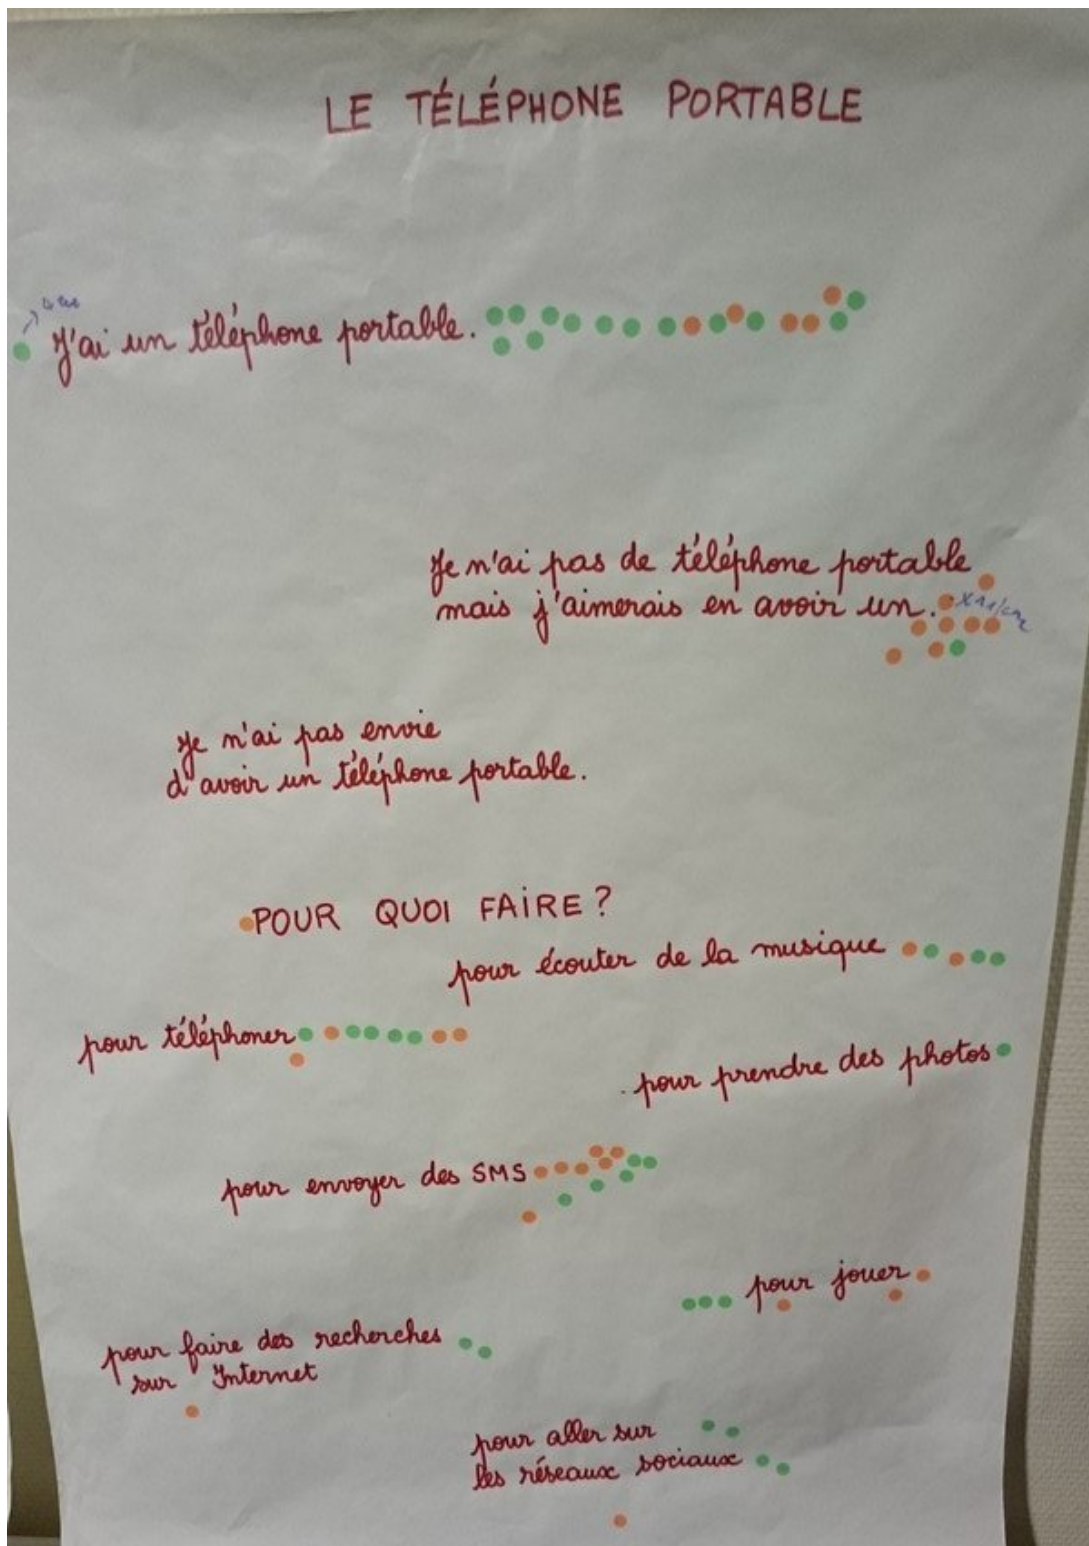 LE TÉLÉPHONE PORTABLE
J'ai un téléphone portable.
Je n'ai pas de téléphone portable
mais j'aimerais en avoir un.
Je n'ai pas envie
d'avoir un téléphone portable.
POUR QUOI FAIRE ?
pour écouter de la musique
pour téléphoner
pour prendre des photos
pour envoyer des SMS
pour jouer
pour faire des recherches
sur Internet
pour aller sur
les réseaux sociaux